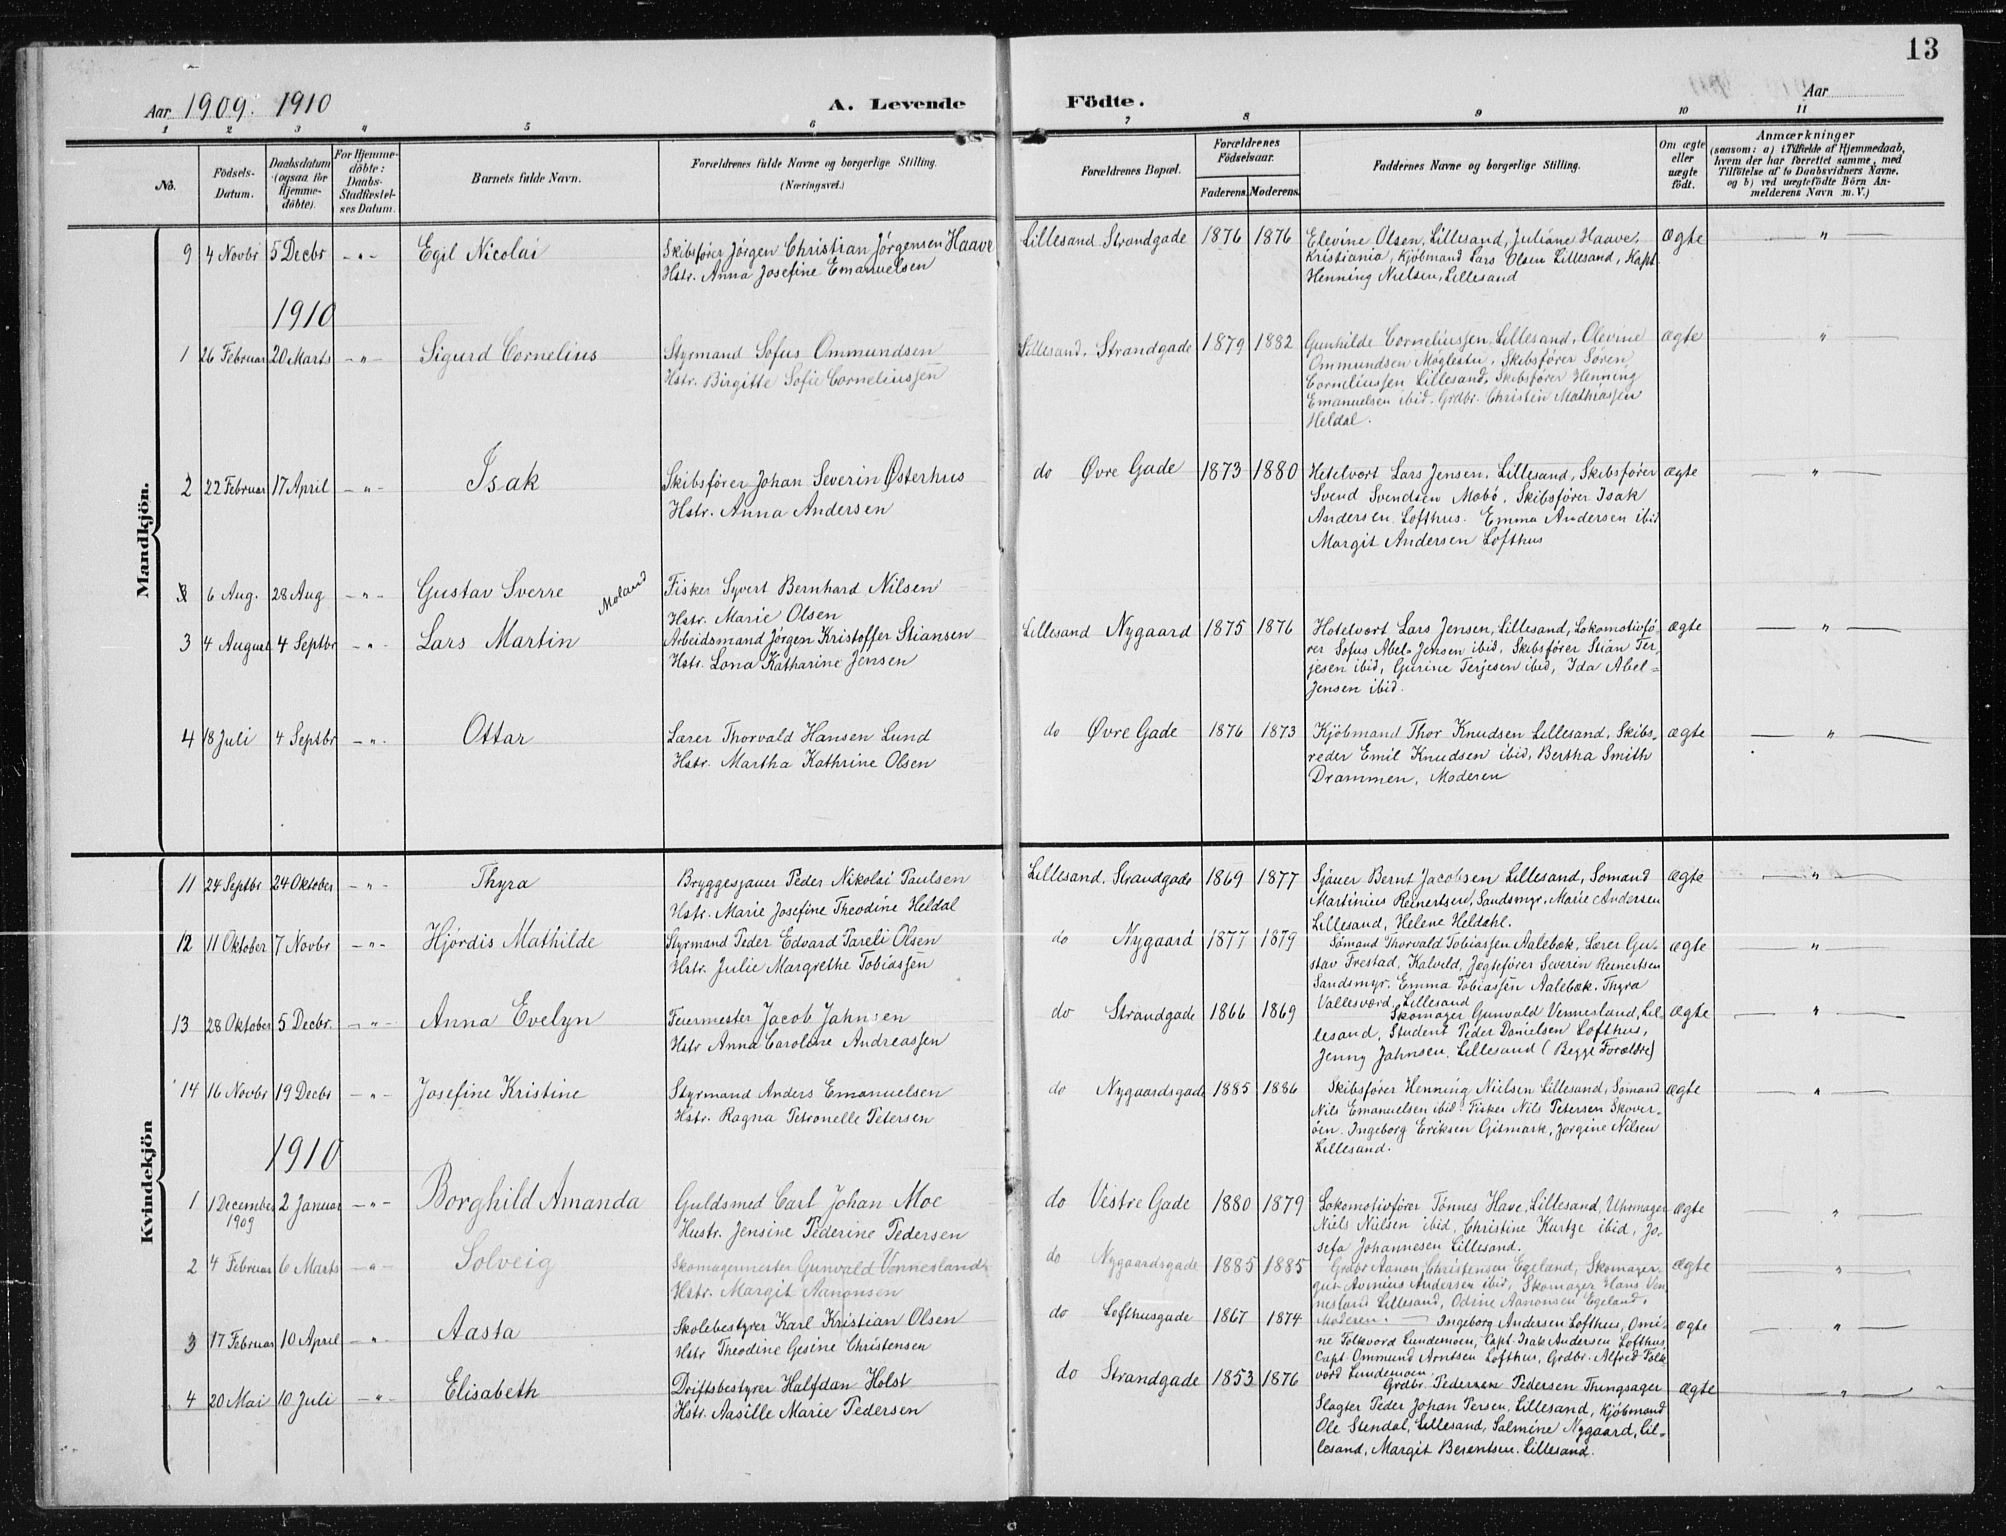 13
Aar 1909. 1910 A. Levende Födte. Aar
1 2 3 4 5 6 7 8 9 10 11
No.
Födsels-Datum.
Daabsdatum (ogsaa for Hjemme-döbte).
For Hjemme-döbte: Daabs-Stadfæstel-ses Datum.
Barnets fulde Navn.
Forældrenes fulde Navne og borgerlige Stilling. (Næringsvei.)
Forældrenes Bopæl.
Forældrenes Födselsaar.
Faderens. Moderens.
Faddernes Navne og borgerlige Stilling.
Om ægte eller uægte födt.
Anmærkninger
(saasom: a) i Tilfælde af Hjemmedaab, hvem der har forrettet samme, med Tilföielse af to Daabsvidners Navne, og b) ved uægtefödte Börn An-melderens Navn m. V.)
Mandkjön.
9 4 Novbr 5 Decbr -"- Egil Nicolai Skibsfører Jørgen Christian Jørgensen Haave Lillesand Strandgade 1876 1876 Elevine Olsen, Lillesand, Juliane Haave, ægte "
Hstr. Anna Josefine Emanuelsen Kristiania, Kjöbmand Lars Olsen Lillesand, Kapt.
Henning Nielsen, Lillesand
1910
1 26 Februar 20 Marts -"- Sigurd Cornelius Styrmand Sofus Ommundsen Lillesand. Strandgade 1879 1882 Gunhilde Corneliussen, Lillesand, Olevine ægte "
Hstr. Birgitte Sofie Corneliussen Ommundsen Møglestu, Skibsfører Søren
Corneliussen Lillesand, Skibsfører Henning
Emanuelsen ibid. Grdbr. Christen Mathiassen
Heldal.
2 22 Februar 17 April -"- Isak Skibsfører Johan Severin Østerhus do Øvre Gade 1873 1880 Hotelvort Lars Jensen, Lillesand, Skibsfører ægte "
Hstr. Anna Andersen Svend Svendsen Mobö, Skibsfører Isak
Andersen Lofthus. Emma Andersen ibid
Margit Andersen Lofthus
6 Aug. 28 Aug -"- Gustav Sverre Moland Fisker Syvert Bernhard Nilsen
Hstr. Marie Olsen
3 4 August 4 Septbr -"- Lars Martin Arbeidsmand Jørgen Kristoffer Stiansen Lillesand Nygaard 1875 1876 Hotelvort Lars Jensen, Lillesand, Lokomotivfö- ægte "
Hstr. Lona Katharine Jensen rer Sofus Abel-Jensen ibid, Skibsfører Stian Ter-
jesen ibid, Gurine Terjesen ibid, Ida Abel-
Jensen ibid.
4 18 Juli 4 Septbr -"- Ottar Lærer Thorvald Hansen Lund do Øvre Gade 1876 1873 Kjöbmand Thor Knudsen Lillesand, Skibs- ægte "
Hstr. Martha Kathrine Olsen reder Emil Knudsen ibid, Bertha Smith
Drammen, Moderen
Kvindekjön
11 24 Septbr 24 Oktober -"- Thyra Bryggesjauer Peder Nikolai Paulsen Lillesand. Strandgade 1869 1877 Sjauer Bernt Jacobsen Lillesand, Sömand ægte "
Hstr. Marie Josefine Theodine Heldal Martinius Reinertsen, Sandsmyr, Marie Andersen
Lillesand, Helene Heldahl.
12 11 Oktober 7 Novbr -"- Hjördis Mathilde Styrmand Peder Edvard Pareli Olsen do Nygaard 1877 1879 Sömand Thorvald Tobiassen Aalebæk, Lærer Gu- ægte "
Hstr. Julie Margrethe Tobiassen stav Trestad, Kalveld, Jægtefører Severin Reinertsen
Sandsmyr. Emma Tobiassen Aalebæk. Thyra
Vallesværd, Lillesand
13 28 Oktober 5 Decbr. -"- Anna Evelyn Feiermester Jacob Jahnsen do Strandgade 1866 1869 Skomager Gunvald Vennesland, Lil- ægte "
Hstr Anna Caroline Andreassen lesand, Student Peder Danielsen Lofthus,
Jenny Jahnsen. Lillesand (Begge Forældre)
14 16 Novbr 19 Decbr -"- Josefine Kristine Styrmand Anders Emanuelsen do Nygaardsgade 1885 1886 Skibsfører Henning Nielsen Lillesand, Sömand ægte "
Hstr. Ragna Petronelle Petersen Nils Emanuelsen ibid. Fisker Nils Petersen Skover-
öen. Ingeborg Eriksen Gitmark, Jørgine Nilsen
Lillesand.
1910
1 1 December 1909 2 Januar -"- Borghild Amanda Guldsmed Carl Johan Moe do Vestre Gade 1880 1879 Lokomotivfører Tönnes Have, Lillesand, Uhrmager ægte "
Hustr. Jensine Pederine Pedersen Niels Nielsen ibid, Christine Kurtze ibid, Jo-
sefa Johannesen Lillesand.
2 4 Februar 6 Marts -"- Solveig Skomagermester Gunvald Vennesland do Nygaardsgade 1885 1885 Grdbr Aanon Christensen Egeland, Skomager- ægte "
Hstr. Margit Aanonsen gut Andersen ibid, Skomager Hans Ven-
nesland Lillesand, Odine Aanonsen Egeland,
Moderen.
3 17 Februar 10 April -"- Aasta Skolebestyrer Karl Kristian Olsen do Lofthusgade 1867 1874 Ingeborg Andersen Lofthus, Omi- ægte "
Hstr Theodine Gesine Christensen ne Folkvord Lundemoen, Capt. Isak Andersen Lofthus,
Capt. Ommund Arntsen Lofthus, Grdbr. Alfred Folk-
vord Lundemoen
4 20 Mai 10 Juli -"- Elisabeth Driftsbestyrer Halfdan Holst do Strandgade 1853 1876 Grdbr. Pedersen Pedersen Thingsager ægte "
Hstr. Aasille Marie Pedersen Slagter Peder Johan Persen, Lillesand, Kjöbmand
Ole Stendal, Lillesand, Salmine Nygaard, Lil-
lesand, Margit Berentsen. Lillesand.